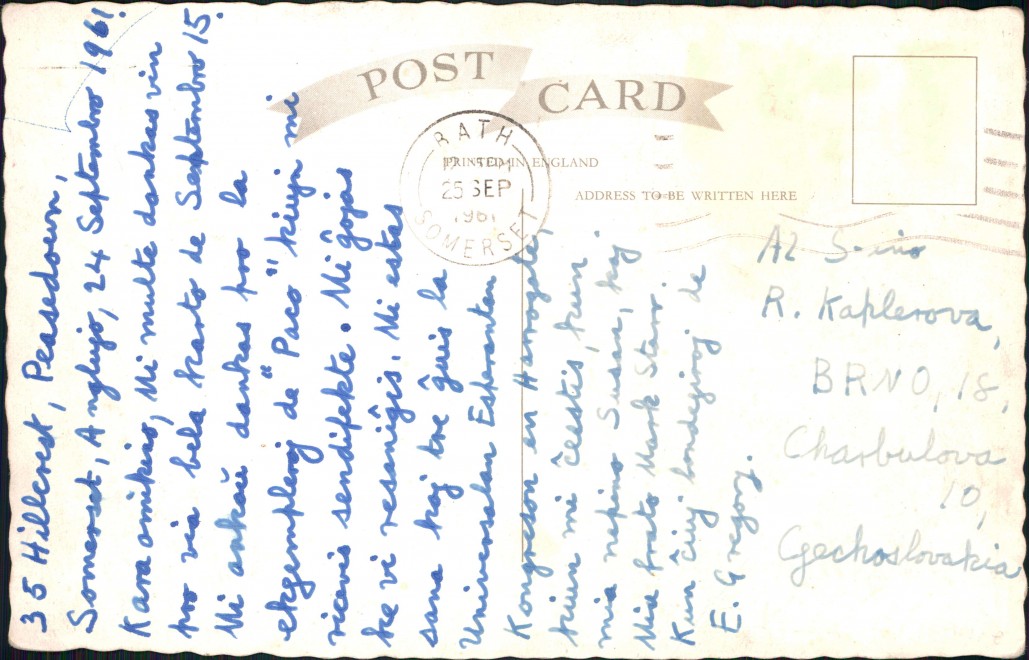 POST CARD
PRINTED IN ENGLAND
ADDRESS TO BE WRITTEN HERE
BATH
25 SEP
1961
SOMERSET
35 Hillcrest, Peasedown,
Somerset, Anglujo, 24 Septembro 1961.
Kara amikino, Mi multe dankas vin
pro via bela karto de Septembro 15.
Mi ankaŭ dankas pro la
ekzempleroj de "Paco" kiujn mi
ricevis sendifekte. Mi ĝojas
ke vi resaniĝis. Mi estas
sana kaj tre ĝuis la
Universalan Esperantan
Kongreson en Harrogate,
kiun mi ĉeestis, kun
mia nepino Susan, kaj
Mia frato Mark Starr.
Kun ĉiuj bondeziroj de
E. Gregory.
Al S-ino
R. Kaplerova,
BRNO, 18,
Charbulova
10,
Czechoslovakia